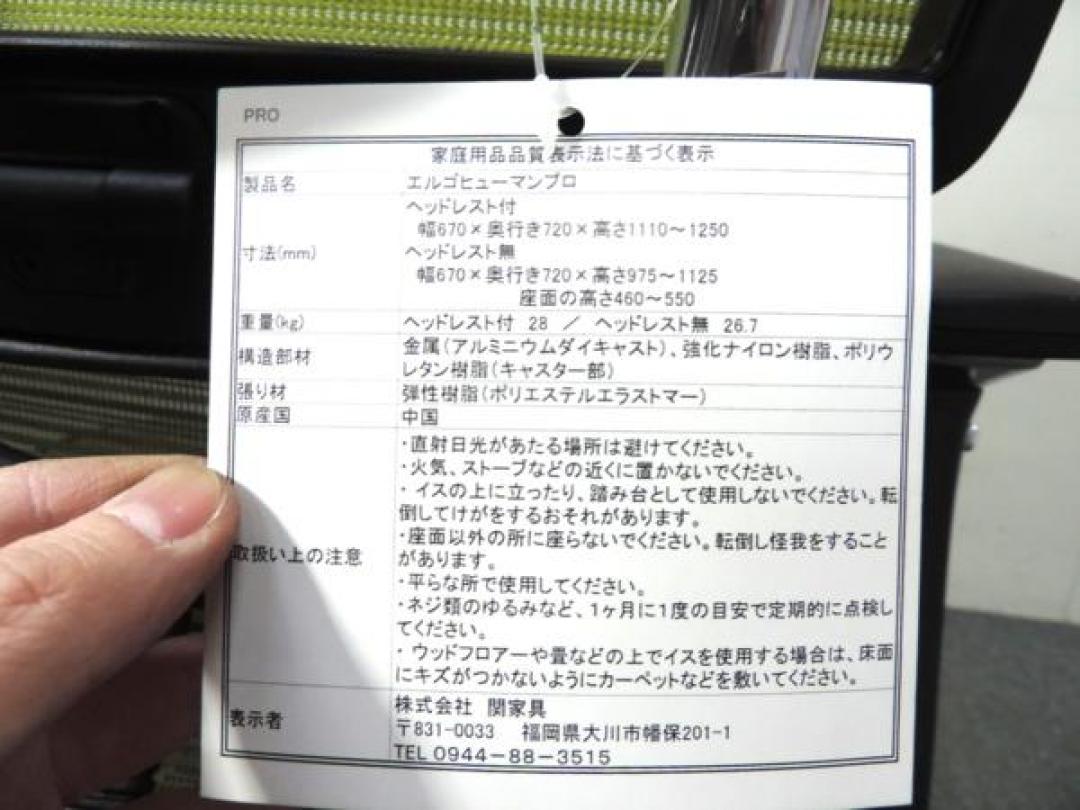 PRO
家庭用品品質表示法に基づく表示
製品名 エルゴヒューマンプロ
寸法(mm)
ヘッドレスト付
幅670×奥行き720×高さ1110～1250
ヘッドレスト無
幅670×奥行き720×高さ975～1125
座面の高さ460～550
重量(kg) ヘッドレスト付 28 ／ ヘッドレスト無 26.7
構造部材
金属(アルミニウムダイキャスト)、強化ナイロン樹脂、ポリウ
レタン樹脂(キャスター部)
張り材 弾性樹脂(ポリエステルエラストマー)
原産国 中国
取扱い上の注意
・直射日光があたる場所は避けてください。
・火気、ストーブなどの近くに置かないでください。
・イスの上に立ったり、踏み台として使用しないでください。転
倒してけがをするおそれがあります。
・座面以外の所に座らないでください。転倒し怪我をすること
があります。
・平らな所で使用してください。
・ネジ類のゆるみなど、1ヶ月に1度の目安で定期的に点検し
てください。
・ウッドフロアーや畳などの上でイスを使用する場合は、床面
にキズがつかないようにカーペットなどを敷いてください。
表示者
株式会社 関家具
〒831-0033 福岡県大川市幡保201-1
TEL 0944-88-3515